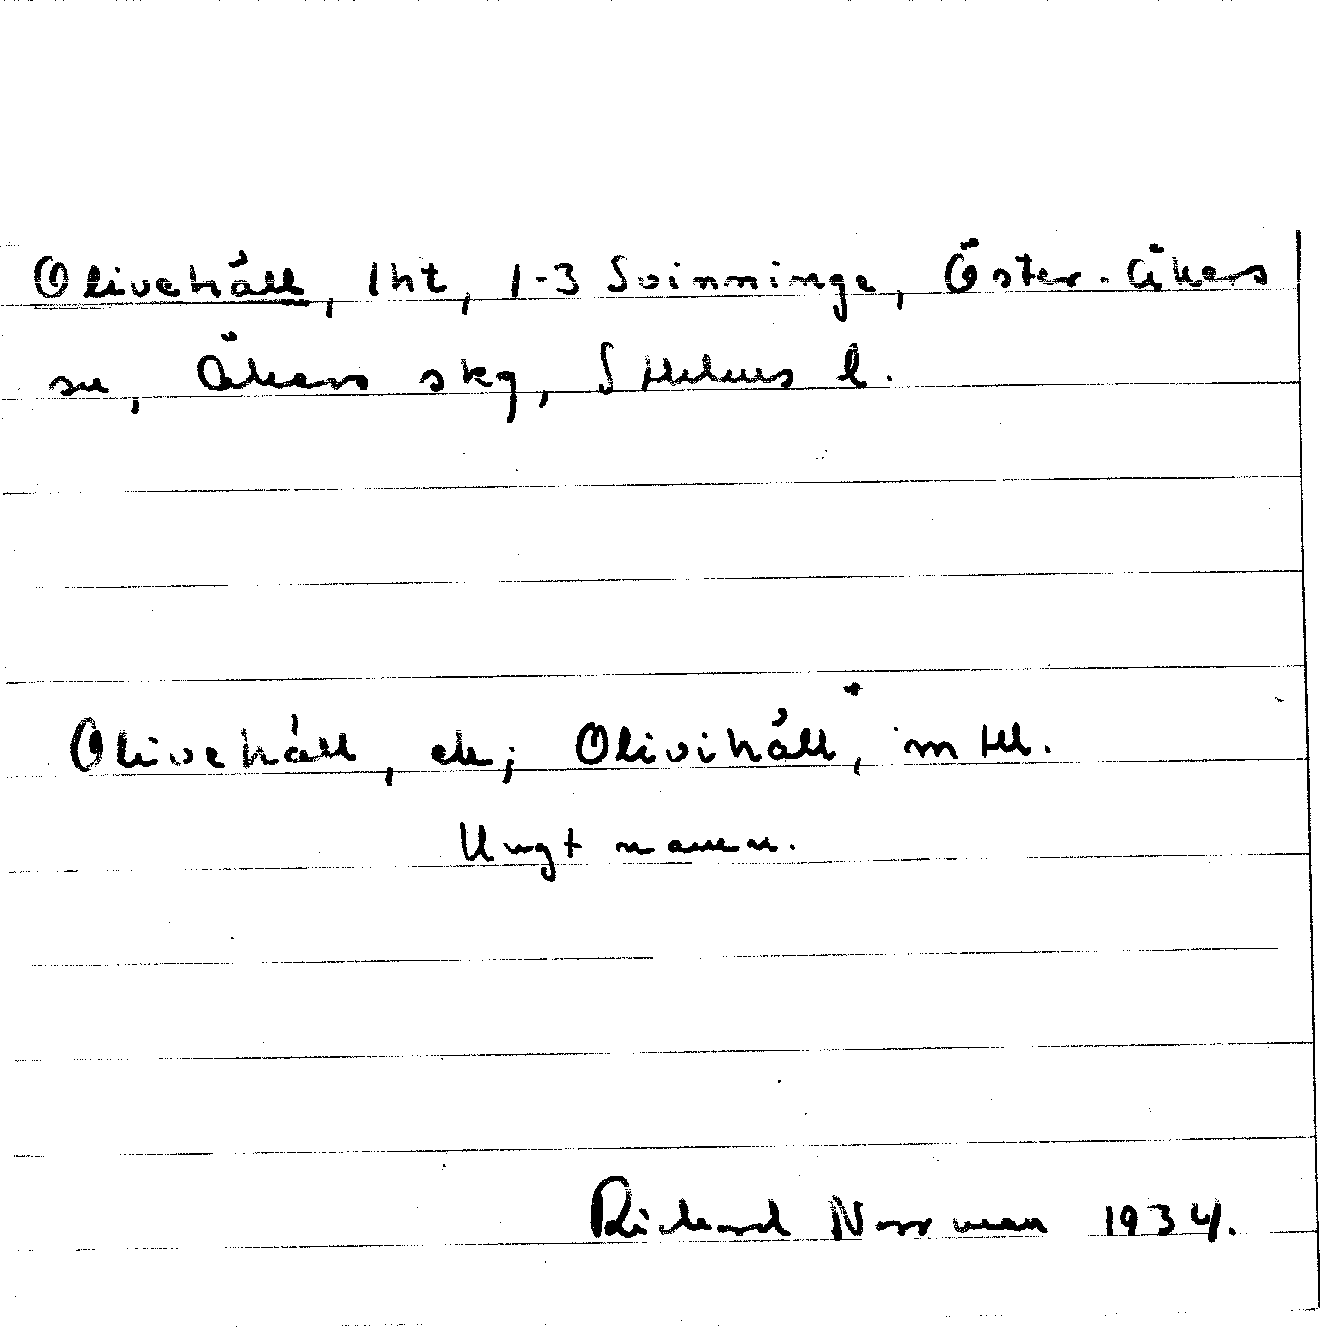 Olivehäll, lht, 1-3 Svinninge, Öster-Åkers
sn, Åkers skg, Sthlms l.
Olivehäll, ek; Olivihäll, mtl.
Ungt namn.
Richard Norrman 1934.